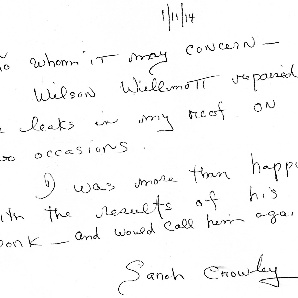 1/11/14
To whom it may concern -
Wilson Wiellmott repaired
leaks in my roof on
two occasions.
I was more than happ
with the results of his
work - and would call him agai
Sarah Crowley